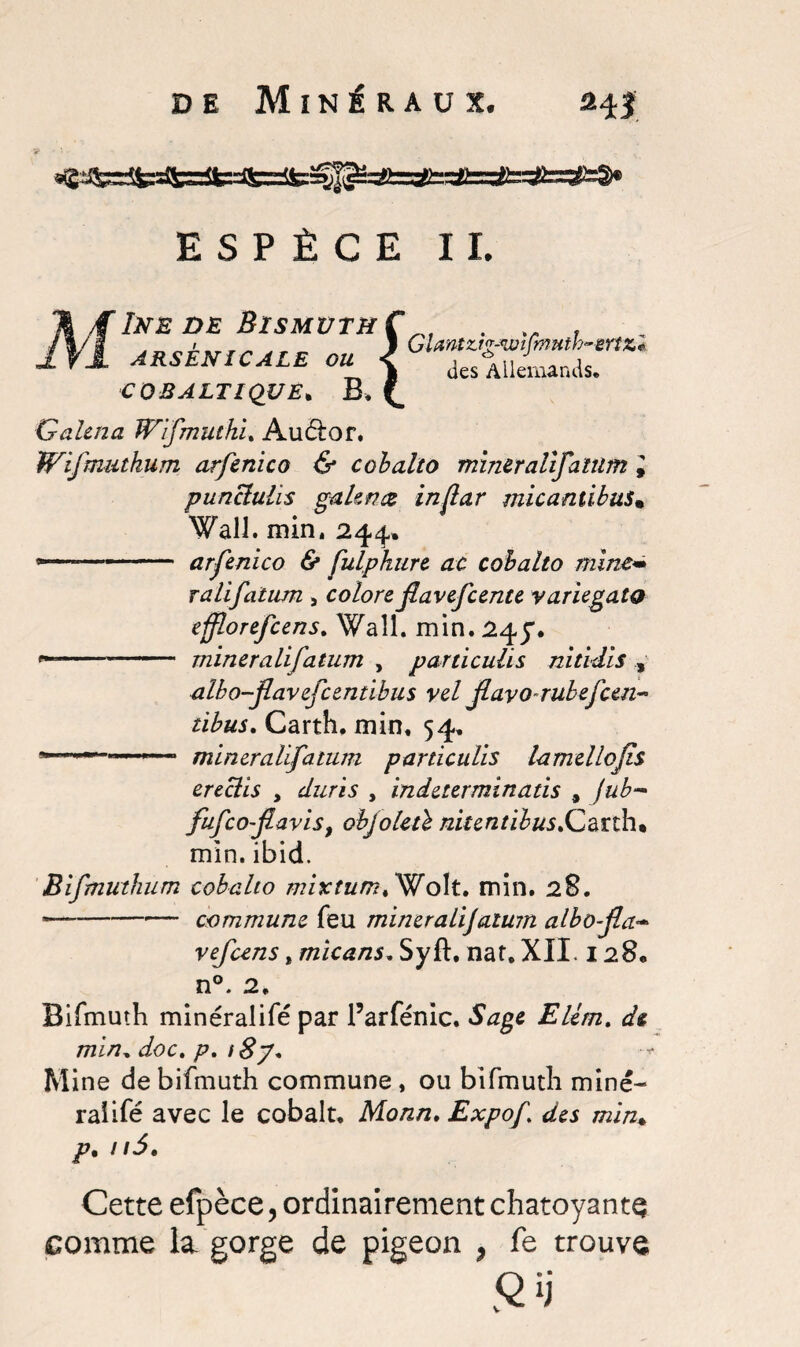 DE MINÉRAUX. 243
ESPÈCE II.
MINE DE BISMUTH
ARSÉNICALE ou
COBALTIQUE. B.
Glantzig-wiſmuth-ertz.
des Allemands.
Galena Wiſmuthi. Auctor.
Wiſmuthum arſenico & cobalto mineraliſatum ;
punctulis galenæ inſtar micantibus.
Wall. min. 244.
——— arſenico & ſulphure ac cobalto mine-
raliſatum , colore flaveſcente variegato
effloreſcens. Wall. min. 245.
——— mineraliſatum , particulis nitidis ,
albo-flaveſcentibus vel flavo-rubeſcen-
tibus. Carth. min. 54.
——— mineraliſatum particulis lamelloſis
erectis , duris , indeterminatis , ſub-
fuſco-flavis, obſoletè nitentibus. Carth.
min. ibid.
Biſmuthum cobalto mixtum. Wolt. min. 28.
——— commune ſeu mineraliſatum albo-fla-
veſcens, micans. Syſt. nat. XII. 128.
n°. 2.
Biſmuth minéraliſé par l'arſénic. Sage Elém. de
min. doc. p. 187.
Mine de biſmuth commune, ou biſmuth miné-
raliſé avec le cobalt. Monn. Expoſ. des min.
p. 115.
Cette eſpèce, ordinairement chatoyante
comme la gorge de pigeon , ſe trouve
Q ij